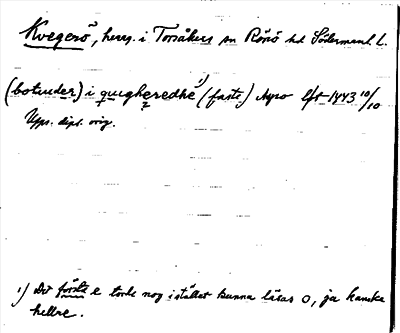 Kvegerö, herrg. i Torsåkers sn Rönö hd Södermanl. l.
(botunder) i quigheredhe 1) (faste) Nyro Lfs 1443 10/10
Upps. dipl. orig.
1) Det första e torde nog i stället kunna läsas o, ja kanske
hellre.